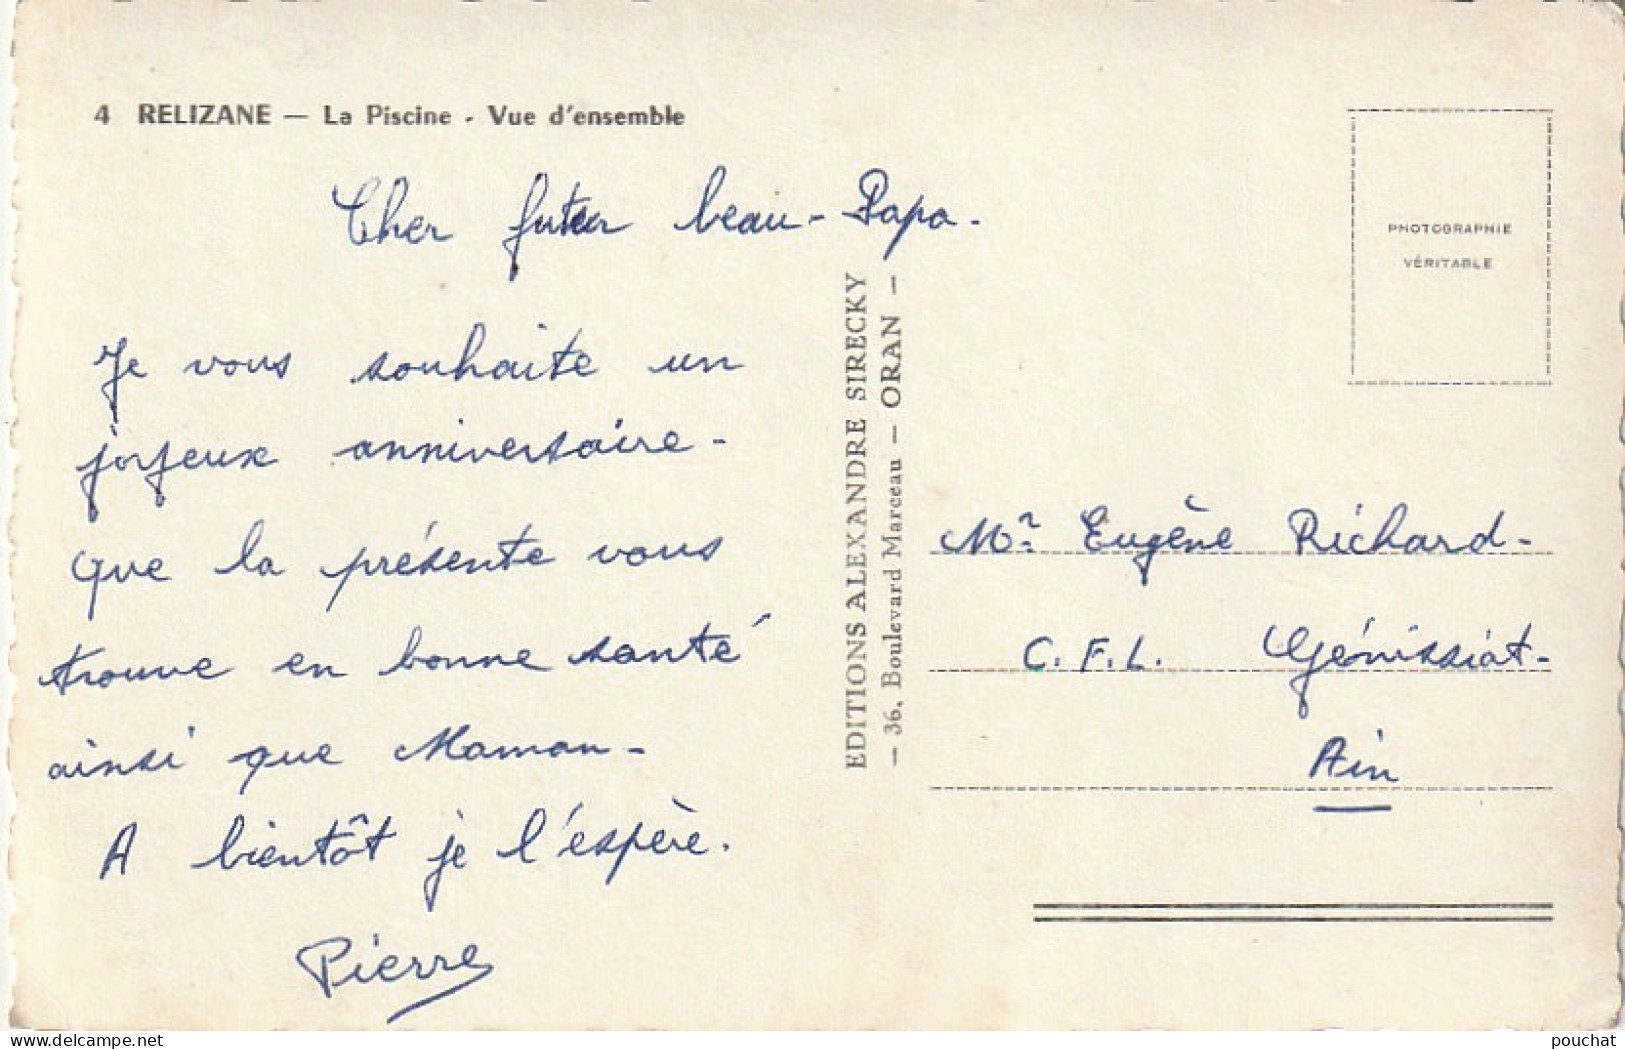 4 RELIZANE — La Piscine - Vue d'ensemble
Cher futur beau-Papa.
Je vous souhaite un
joyeux anniversaire -
que la présente vous
trouve en bonne santé
ainsi que Maman -
A bientôt je l'espère.
Pierre
EDITIONS ALEXANDRE SIRECKY
— 36, Boulevard Marceau — ORAN —
PHOTOGRAPHIE
VÉRITABLE
Mr Eugène Richard -
C.F.L. Génissiat -
Ain
www.delcampe.net
pouchat